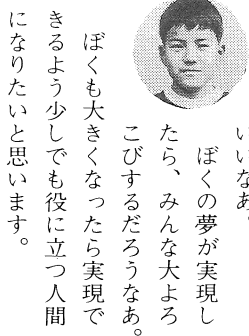 いいなあ。
ぼくの夢が実現し
たら、みんな大よろ
こびするだろうなあ。
ぼくも大きくなったら実現で
きるよう少しでも役に立つ人間
になりたいと思います。